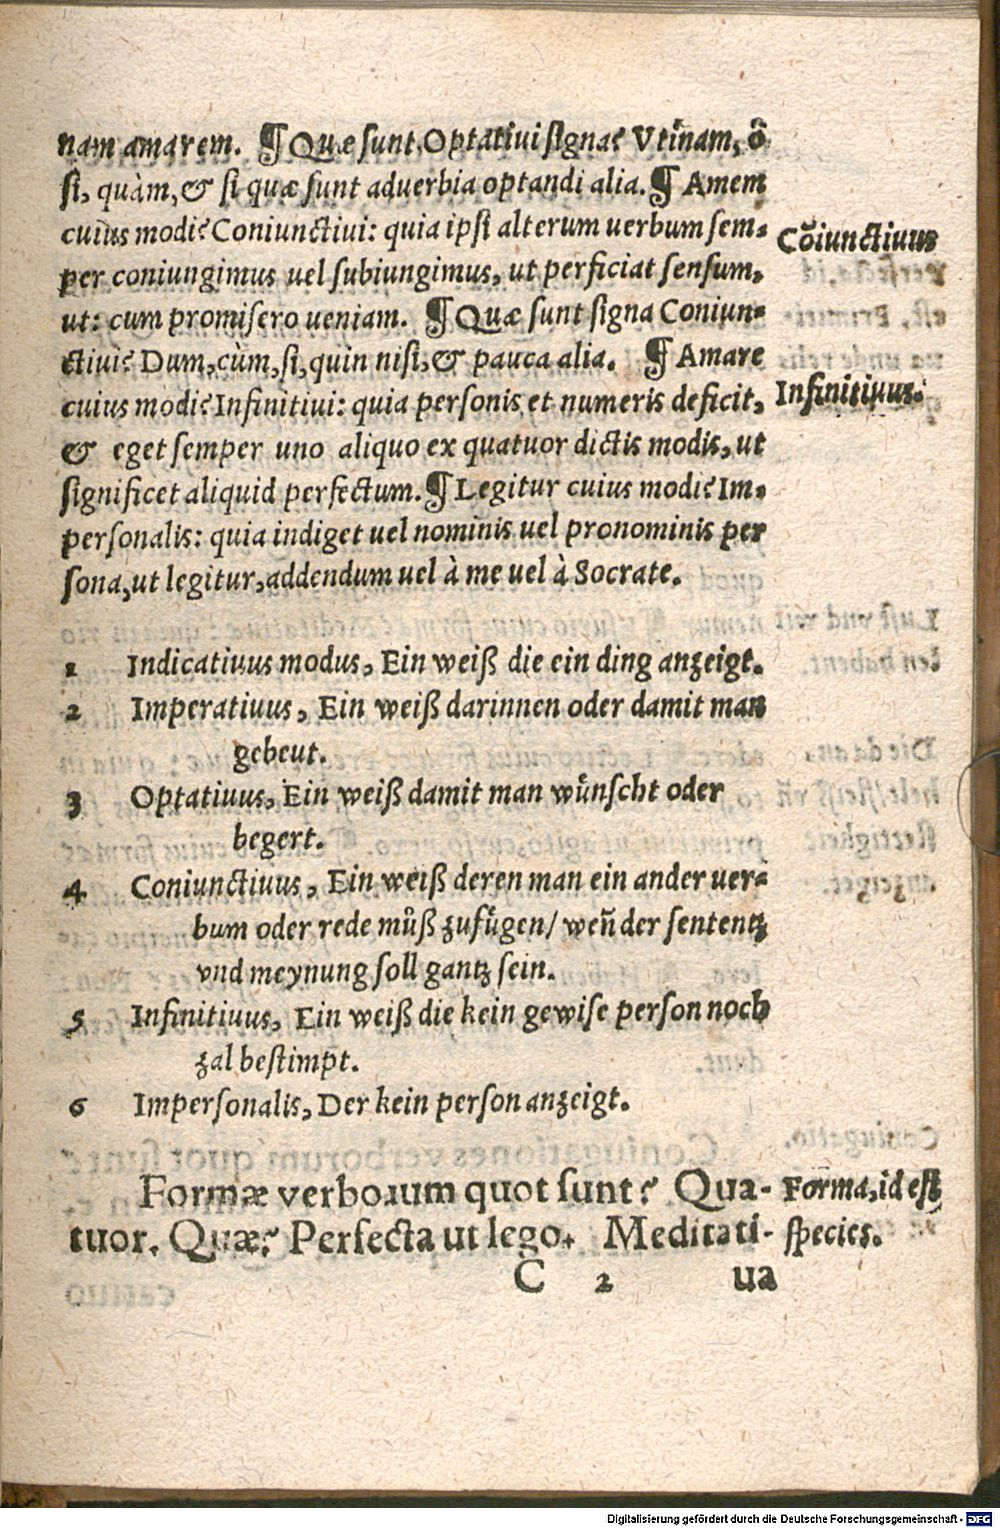 nam amarem. ¶ Quæ sunt Optatiui signa? Vtinam, ô
si, quàm, & si quæ sunt aduerbia optandi alia. ¶ Amem
cuius modi? Coniunctiui: quia ipsi alterum uerbum sem-
per coniungimus uel subiungimus, ut perficiat sensum,
ut: cum promisero ueniam. ¶ Quæ sunt signa Coniun-
ctiui? Dum, cùm, si, quin nisi, & pauca alia. ¶ Amare
cuius modi? Infinitiui: quia personis et numeris deficit,
& eget semper uno aliquo ex quatuor dictis modis, ut
significet aliquid perfectum. ¶ Legitur cuius modi? Im-
personalis: quia indiget uel nominis uel pronominis per
sona, ut legitur, addendum uel à me uel à Socrate.
Cõiunctiuus
Infinitiuus.
1 Indicatiuus modus, Ein weiß die ein ding anzeigt.
2 Imperatiuus, Ein weiß darinnen oder damit man
gebeut.
3 Optatiuus, Ein weiß damit man wuͤnscht oder
begert.
4 Coniunctiuus, Ein weiß deren man ein ander uer-
bum oder rede muͦß zufuͤgen/ weñ der sententz
vnd meynung soll gantz sein.
5 Infinitiuus, Ein weiß die kein gewise person noch
zal bestimpt.
6 Impersonalis, Der kein person anzeigt.
Formæ verborum quot sunt? Qua-
tuor. Quæ? Perfecta ut lego. Meditati-
Forma, id est
species.
C 2 ua
Digitalisierung gefördert durch die Deutsche Forschungsgemeinschaft - DFG